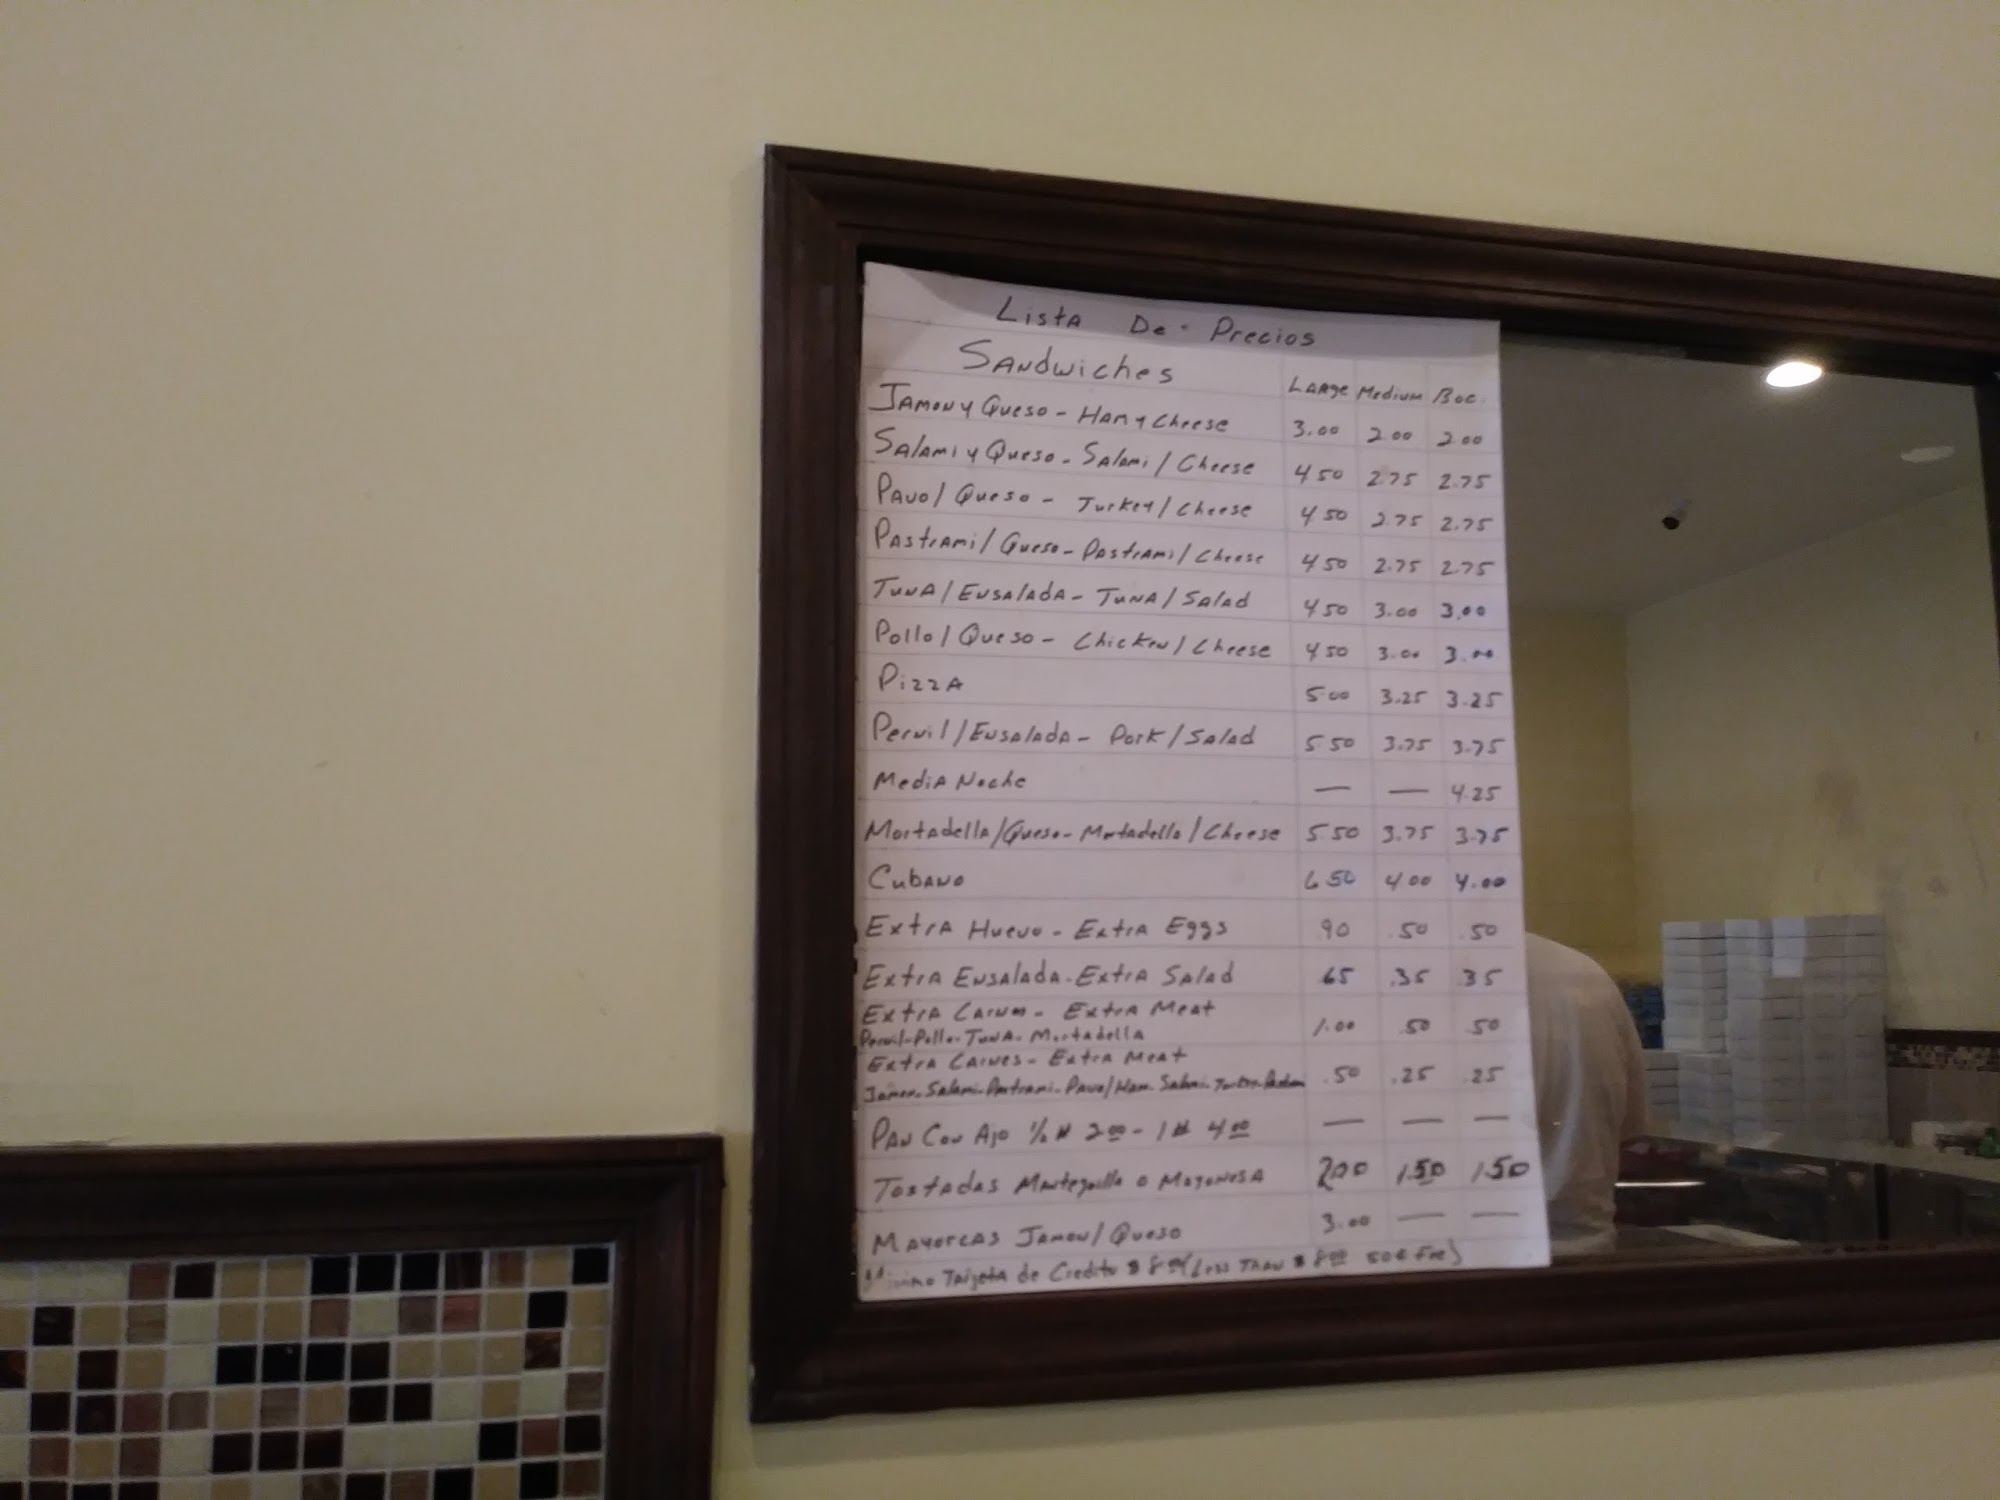 Lista De Precios
Sandwiches Large Medium Boc.
Jamon y Queso - Ham y Cheese 3.00 2.00 2.00
Salami y Queso - Salami / Cheese 4 50 2.75 2.75
Pavo / Queso - Turkey / Cheese 4 50 2.75 2.75
Pastrami / Queso - Pastrami / Cheese 4 50 2.75 2.75
Tuna / Ensalada - Tuna / Salad 4 50 3.00 3.00
Pollo / Queso - Chicken / Cheese 4 50 3.00 3.00
Pizza 5.00 3.25 3.25
Pernil / Ensalada - Pork / Salad 5 50 3.75 3.75
Media Noche — — 4.25
Mortadella / Queso - Mortadella / Cheese 5 50 3.75 3.75
Cubano 6 50 4 00 4.00
Extra Huevo - Extra Eggs 90 .50 .50
Extra Ensalada - Extra Salad .65 .35 .35
Extra Carnes - Extra Meat
Pernil - Pollo - Tuna - Mortadella 1.00 .50 .50
Extra Carnes - Extra Meat
Jamon - Salami - Pastrami - Pavo / Ham - Salami - Turkey - Pastrami .50 .25 .25
Pan Con Ajo ½ # 2.00 - 1 # 4.00 — — —
Tostadas Mantequilla o Mayonesa 2.00 1.50 1.50
Mayorcas Jamon / Queso 3.00 — —
Minimo Tarjeta de Credito $ 8.00 (Less Than $ 8.00 50¢ Fee)